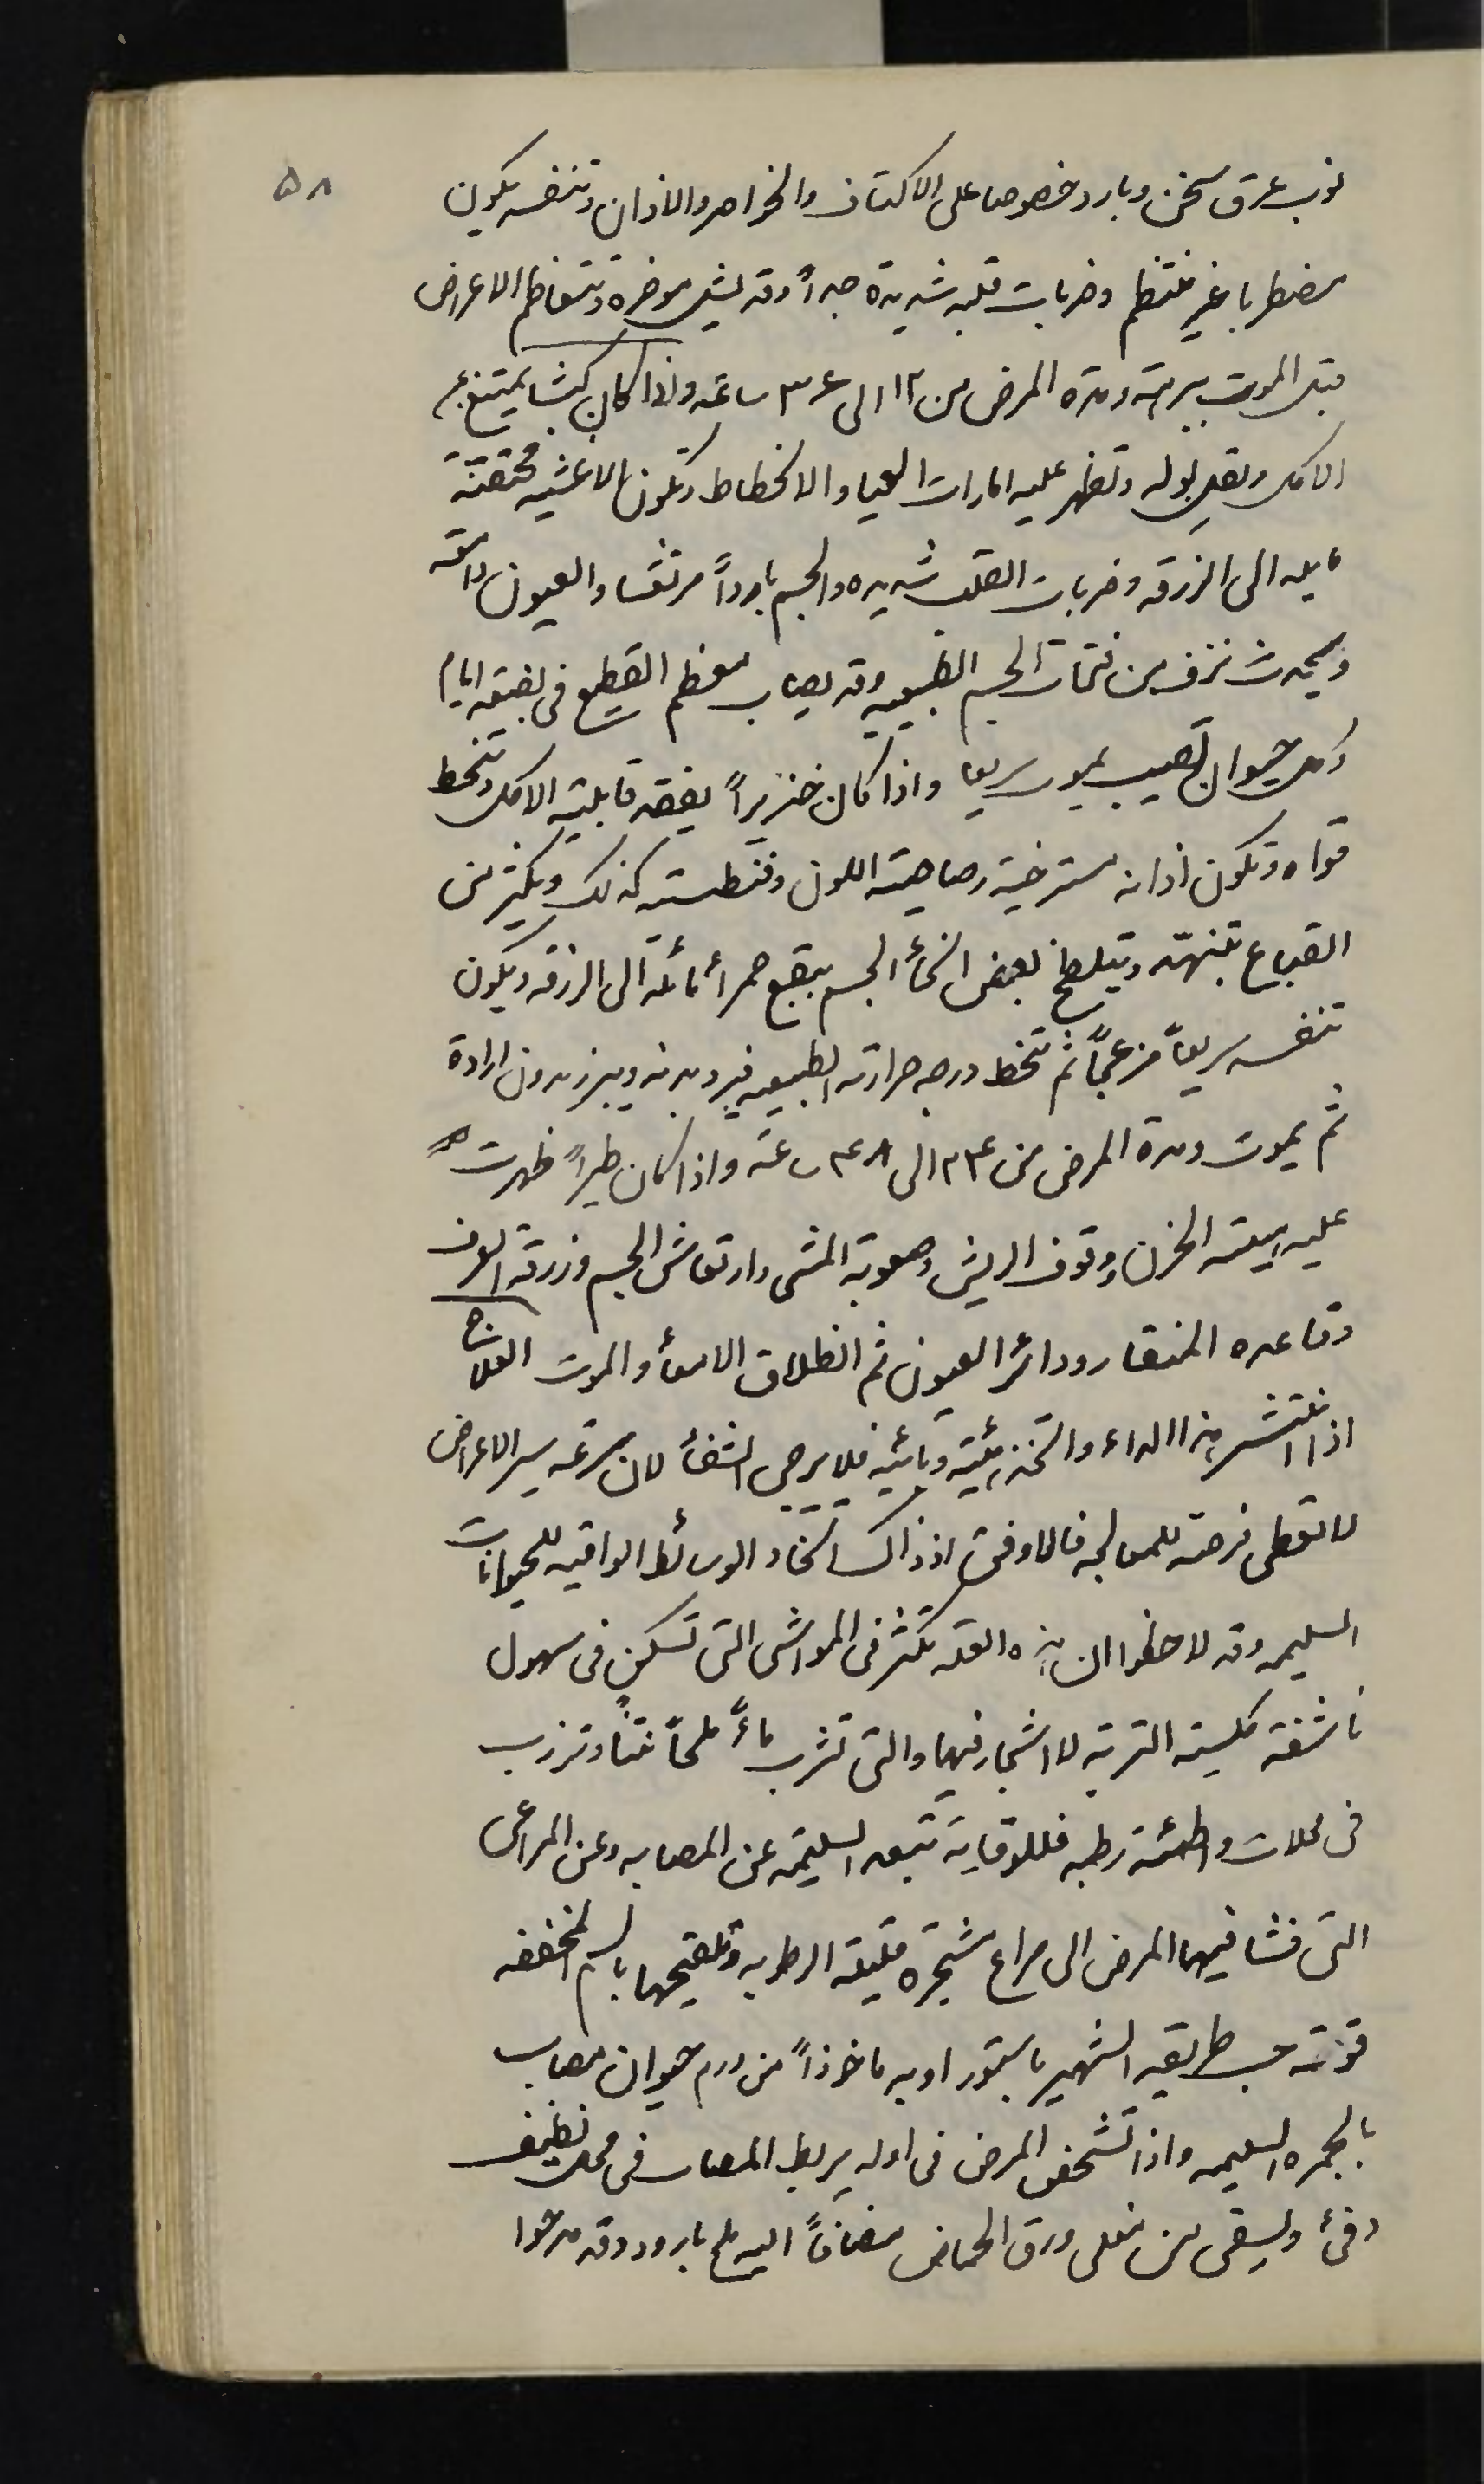 ٥٨
نوب عرق سخن وبارد خصوصا على الاكتاف والخواصر والاذان وتنفسه يكون
مضطربا غير منتظم وضربات قلبه شديدة جداً وقد يشل موخره وتتعاظم الاعراض
قبل الموت ببرهة ومدة المرض من ١٢ الى ٣٤ ساعه واذا كان كبشا يمتنع عن
الاكل ويقل بوله وتظهر عليه امارات العيا والانحطاط وتكون الاغشيه محتقنة
مايله الى الزرقه وضربات القلب شديده والجسم بارداً مرتعشا والعيون دامعه
ويحدث نزف من فتحات الجسم الطبيعيه وقد يصاب معظم القطيع فى بضعة ايام
وكل حيوان تصيب يموت سريعا واذا كان خنزيراً يفقد قابلية الاكل وتنحط
قواه وتكون اذانه مسترخية رصاصية اللون وفنطسته كذلك ويكثر من
القباع بتنهّد ويتلطخ بعض انحأ الجسم ببقع حمرأ مائلة الى الزرقه ويكون
تنفسه سريعاً مزعجاً ثم تنحط درجه حرارته الطبيعيه فيبرد بدنه ويبرز بدون ارادة
ثم يموت ومدة المرض من ٢٤ الى ٤٨ ساعة واذا كان طيراً ظهرت
عليه هيئة الحزن ووقوف الريش وصعوبة المشى وارتعاش الجسم وزرقة العرف
وقاعده المنقار ودائر العيون ثم انطلاق الامعأ والموت العلاج
اذا انتشر هذا الداء واتخذ هيئة وبائيه فلا يرجى الشفأ لان سرعه سير الاعراض
لا تعطى فرصة للمعالجه فالاوفق اذ ذاك اتخاذ الوسائط الواقيه للحيوانات
السليمه وقد لاحظوا ان هذه العله تكثر فى المواشى التى تسكن فى سهول
ناشفة كلسية التربه لا اشجار فيها والتى تشرب مأً ملحاً نتناً وتزرب
فى محلات واطئة رطبه فللوقاية تبعد السليمة عن المصابه وعن المراعى
التى فشا فيها المرض الى مراع مشجرة قليلة الرطوبه وتلقيحها بالسم المخففه
قوته حسب طريقه الشهير باستور اوبه ماخوذاً من ورم حيوان مصاب
بالجمره السليمه واذا تشخص المرض فى اوله يربط المصاب فى محل نظيف
دفئ ويسقى من مغلى ورق الحماض مضافاً اليه ملح بارود وقد مدحوا